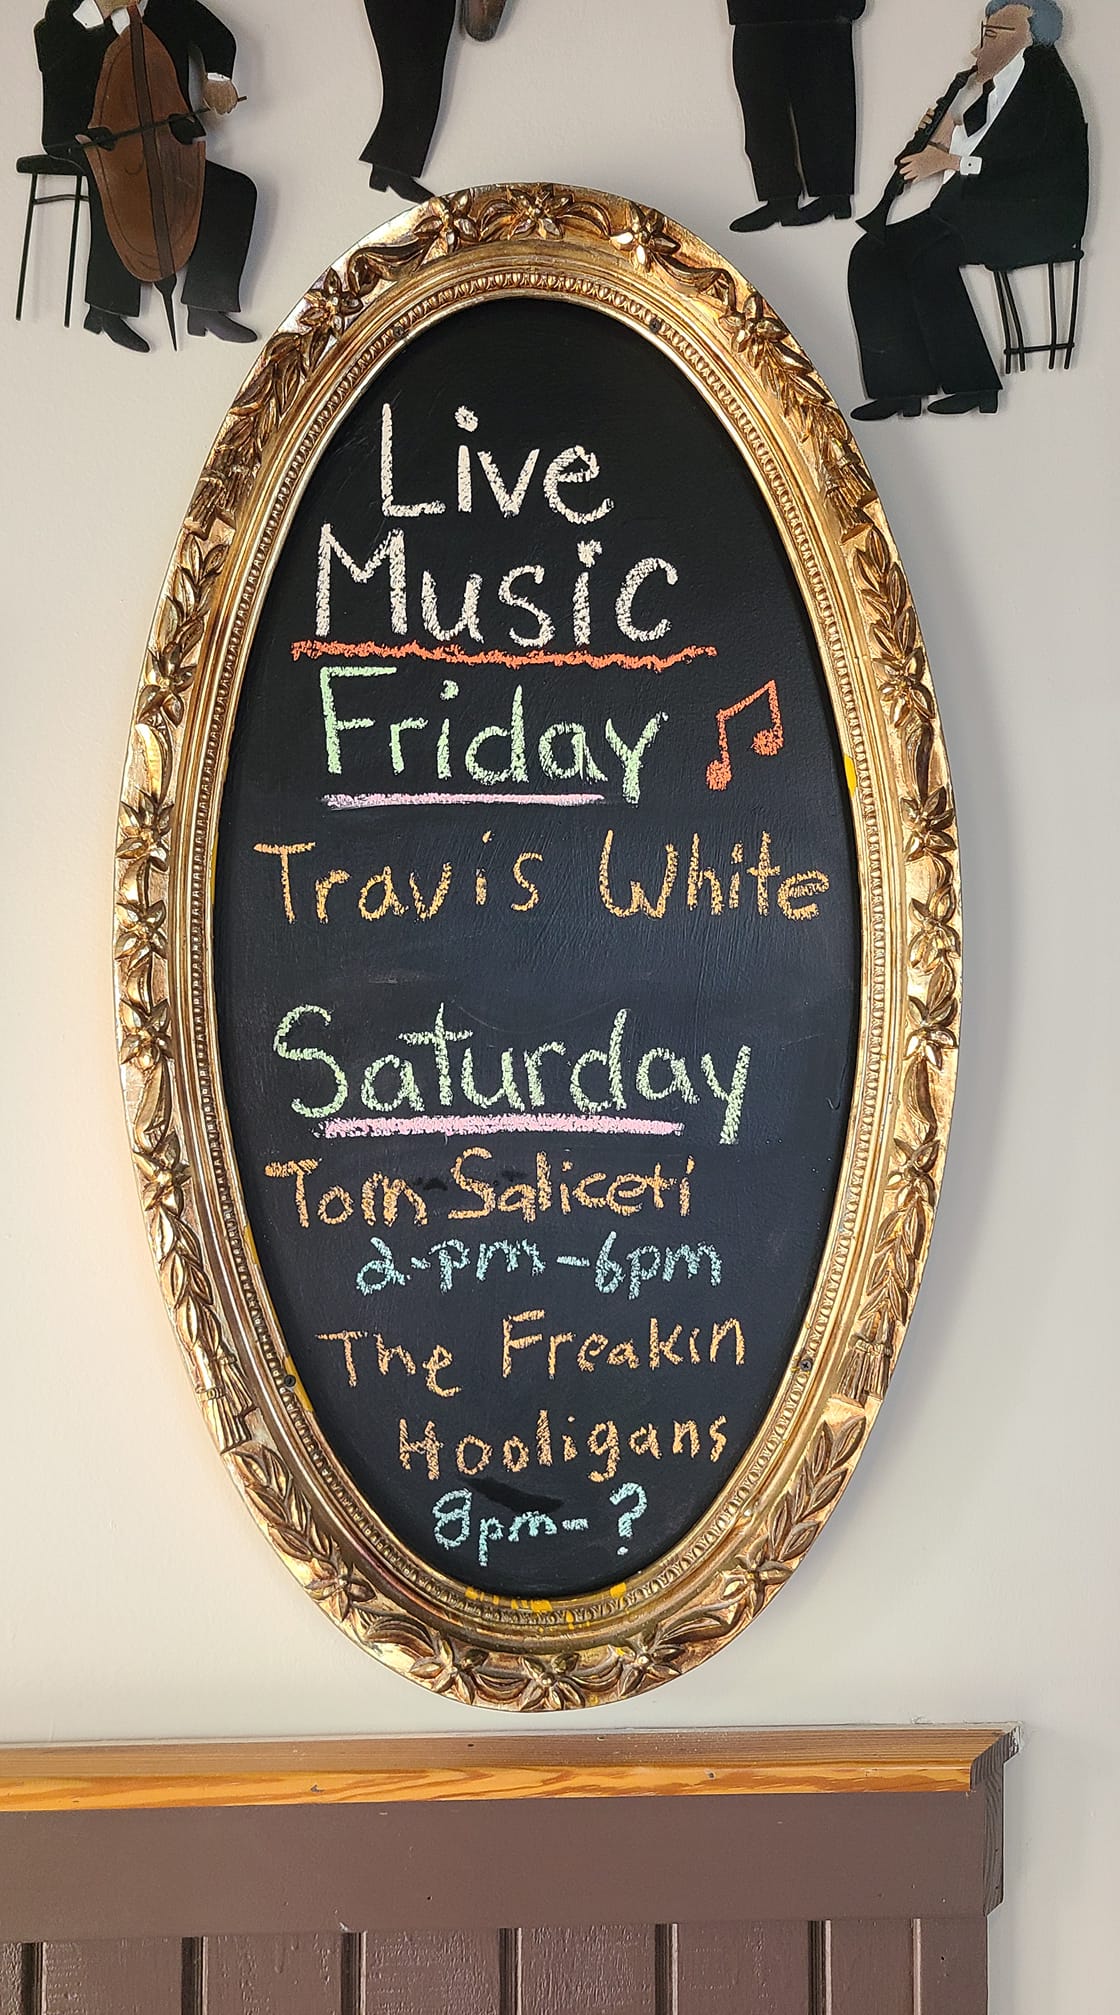 Live
Music
Friday
Travis White
Saturday
Tom Saliceti
2-pm-6pm
The Freakin
Hooligans
8pm-?